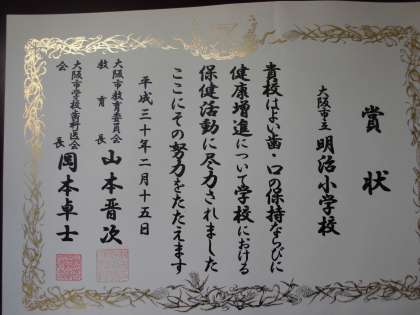 賞状
大阪市立 明治小学校
貴校はよい歯・口の保持ならびに
健康増進について学校における
保健活動に尽力されました
ここにその努力をたたえます
平成三十年二月十五日
大阪市教育委員会
教育長 山本晋次
大阪市学校歯科医会
会長 岡本卓士